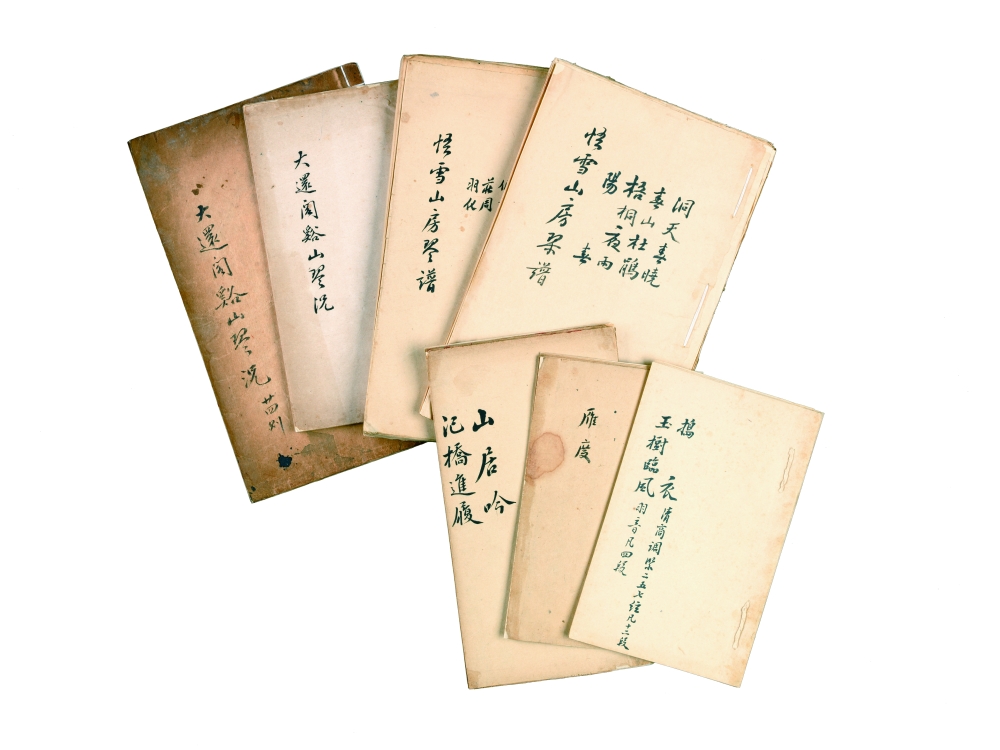 大還閣谿山琴況 廿四则
大還閣谿山琴况
莊周
羽化
悟雪山房琴譜
洞天春曉
春山杜鵑
梧桐夜雨
陽春
悟雪山房琹譜
山居吟
圯橋進履
雁度
搗衣 清商調緊二五七絃凡十二段
玉樹臨風 羽音凡四段